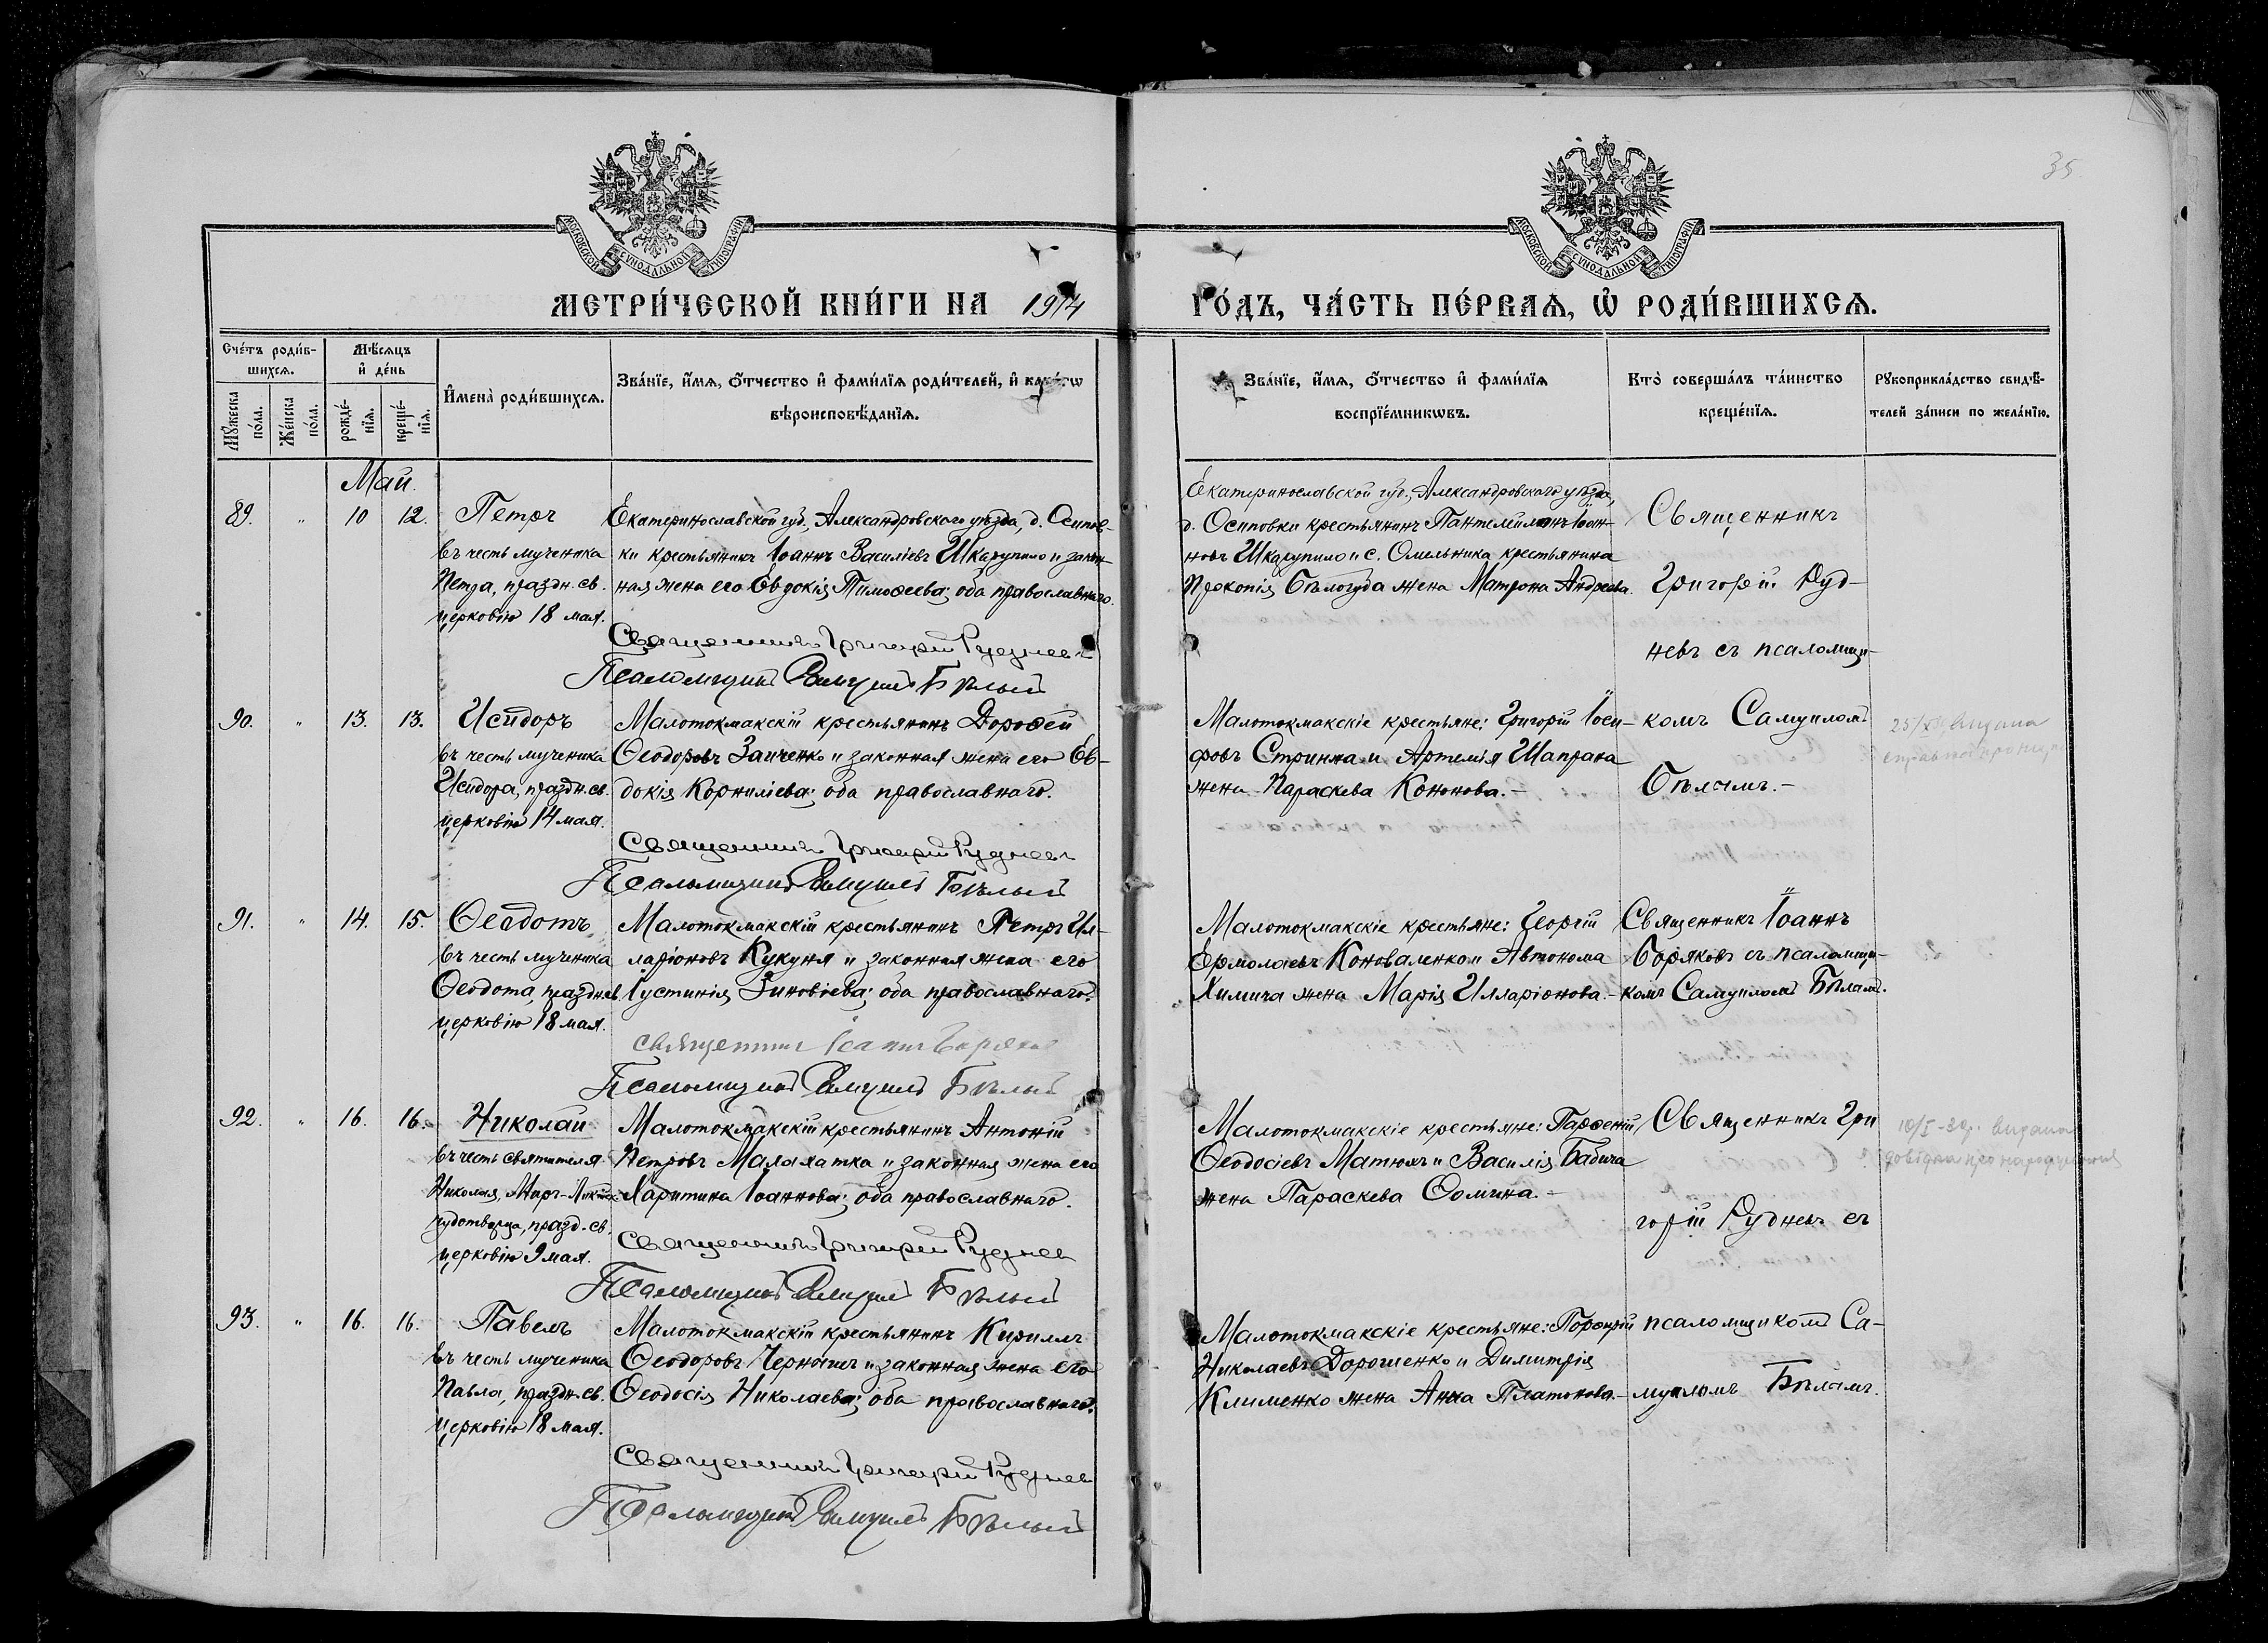 35
МОСКОВСКОЙ СѴНОДАЛЬНОЙ ТИПОГРАФІИ
МОСКОВСКОЙ СѴНОДАЛЬНОЙ ТИПОГРАФІИ
МЕТРИ́ЧЕСКОЙ КНИ́ГИ НА 1914
ГО́ДЪ, ЧА́СТЬ ПЕ́РВАѦ, Ѡ҆ РОДИ́ВШИХСѦ.
Сче́тъ роди́в-
шихсѧ.
Мꙋ́жеска по́ла.
Же́нска по́ла.
Мѣ́сѧцъ
и҆ де́нь
рожде́-
нїѧ.
креще́-
нїѧ.
И҆мена̀ роди́вшихсѧ.
Зва́нїе, и҆́мѧ, ѻ҆́тчество и҆ фами́лїѧ роди́телей, и҆ како́гѡ
вѣроисповѣ́данїѧ.
Зва́нїе, и҆́мѧ, ѻ҆́тчество и҆ фами́лїѧ
воспрїе́мникѡвъ.
Кто̀ соверша́лъ та́инство
креще́нїѧ.
Рꙋкоприкла́дство свидѣ́-
телей за́писи по жела́нїю.
Май.
89. " 10 12. Петръ
въ честь мученика
Петра, праздн. св.
церковію 18 мая.
Екатеринославской губ., Александровскаго уѣзда, д. Осипов-
ки крестьянинъ Іоаннъ Василіевъ Шкарупило и закон-
ная жена его Евдокія Тимоѳеева; оба православнаго.
Священникъ Григорій Рудневъ
Псаломщикъ Самуилъ Бѣлый
Екатеринославской губ., Александровскаго уѣзда,
д. Осиповки крестьянинъ Пантелеимонъ Іоан-
новъ Шкарупило и с. Омельника крестьянина
Прокопія Бѣлогуда жена Матрона Андреева.
Священникъ
Григорій Руд-
невъ съ псаломщи-
90. " 13. 13. Исидоръ
въ честь мученика
Исидора, праздн. св.
церковію 14 мая.
Малотокмакскій крестьянинъ Дороѳей
Ѳеодоровъ Заиченко и законная жена его Ев-
докія Корниліева; оба православнаго.
Священникъ Григорій Рудневъ
Псаломщикъ Самуилъ Бѣлый
Малотокмакскіе крестьяне: Григорій Іоси-
фовъ Стринжа и Артемія Шапрана
жена Параскева Кононова. –
комъ Самуиломъ
Бѣлымъ. –
91. " 14. 15. Ѳеодотъ
въ честь мученика
Ѳеодота, праздн. св.
церковію 18 мая.
Малотокмакскій крестьянинъ Петръ Ил-
ларіоновъ Кукуня и законная жена его
Іустинія Зиновіева; оба православнаго.
Священникъ Іоаннъ Боряковъ
Псаломщикъ Самуилъ Бѣлый
Малотокмакскіе крестьяне: Георгій
Ермолаевъ Коноваленко и Автонома
Химича жена Марія Илларіонова. –
Священникъ Іоаннъ
Боряковъ съ псаломщи-
комъ Самуиломъ Бѣлымъ.
92. " 16. 16. Николай
въ честь святителя
Николая, Мирт-Ликійск.
чудотворца, празд. св.
церковію 9 мая.
Малотокмакскій крестьянинъ Антоній
Петровъ Малахатка и законная жена его
Харитина Іоаннова; оба православнаго.
Священникъ Григорій Рудневъ
Псаломщикъ Самуилъ Бѣлый
Малотокмакскіе крестьяне: Парѳеній
Ѳеодосіевъ Матюхъ и Василія Бабича
жена Параскева Ѳомина. –
Священникъ Гри
горій Рудневъ съ
10/I-30р. видана
довідка про народження
93. " 16. 16. Павелъ
въ честь мученика
Павла, праздн. св.
церковію 18 мая.
Малотокмакскій крестьянинъ Кириллъ
Ѳеодоровъ Чернышъ и законная жена его
Ѳеодосія Николаева; оба православнаго.
Священникъ Григорій Рудневъ
Псаломщикъ Самуилъ Бѣлый
Малотокмакскіе крестьяне: Порфирій
Николаевъ Дорошенко и Димитрія
Клименко жена Анна Платонова. –
псаломщикомъ Са-
муиломъ Бѣлымъ.